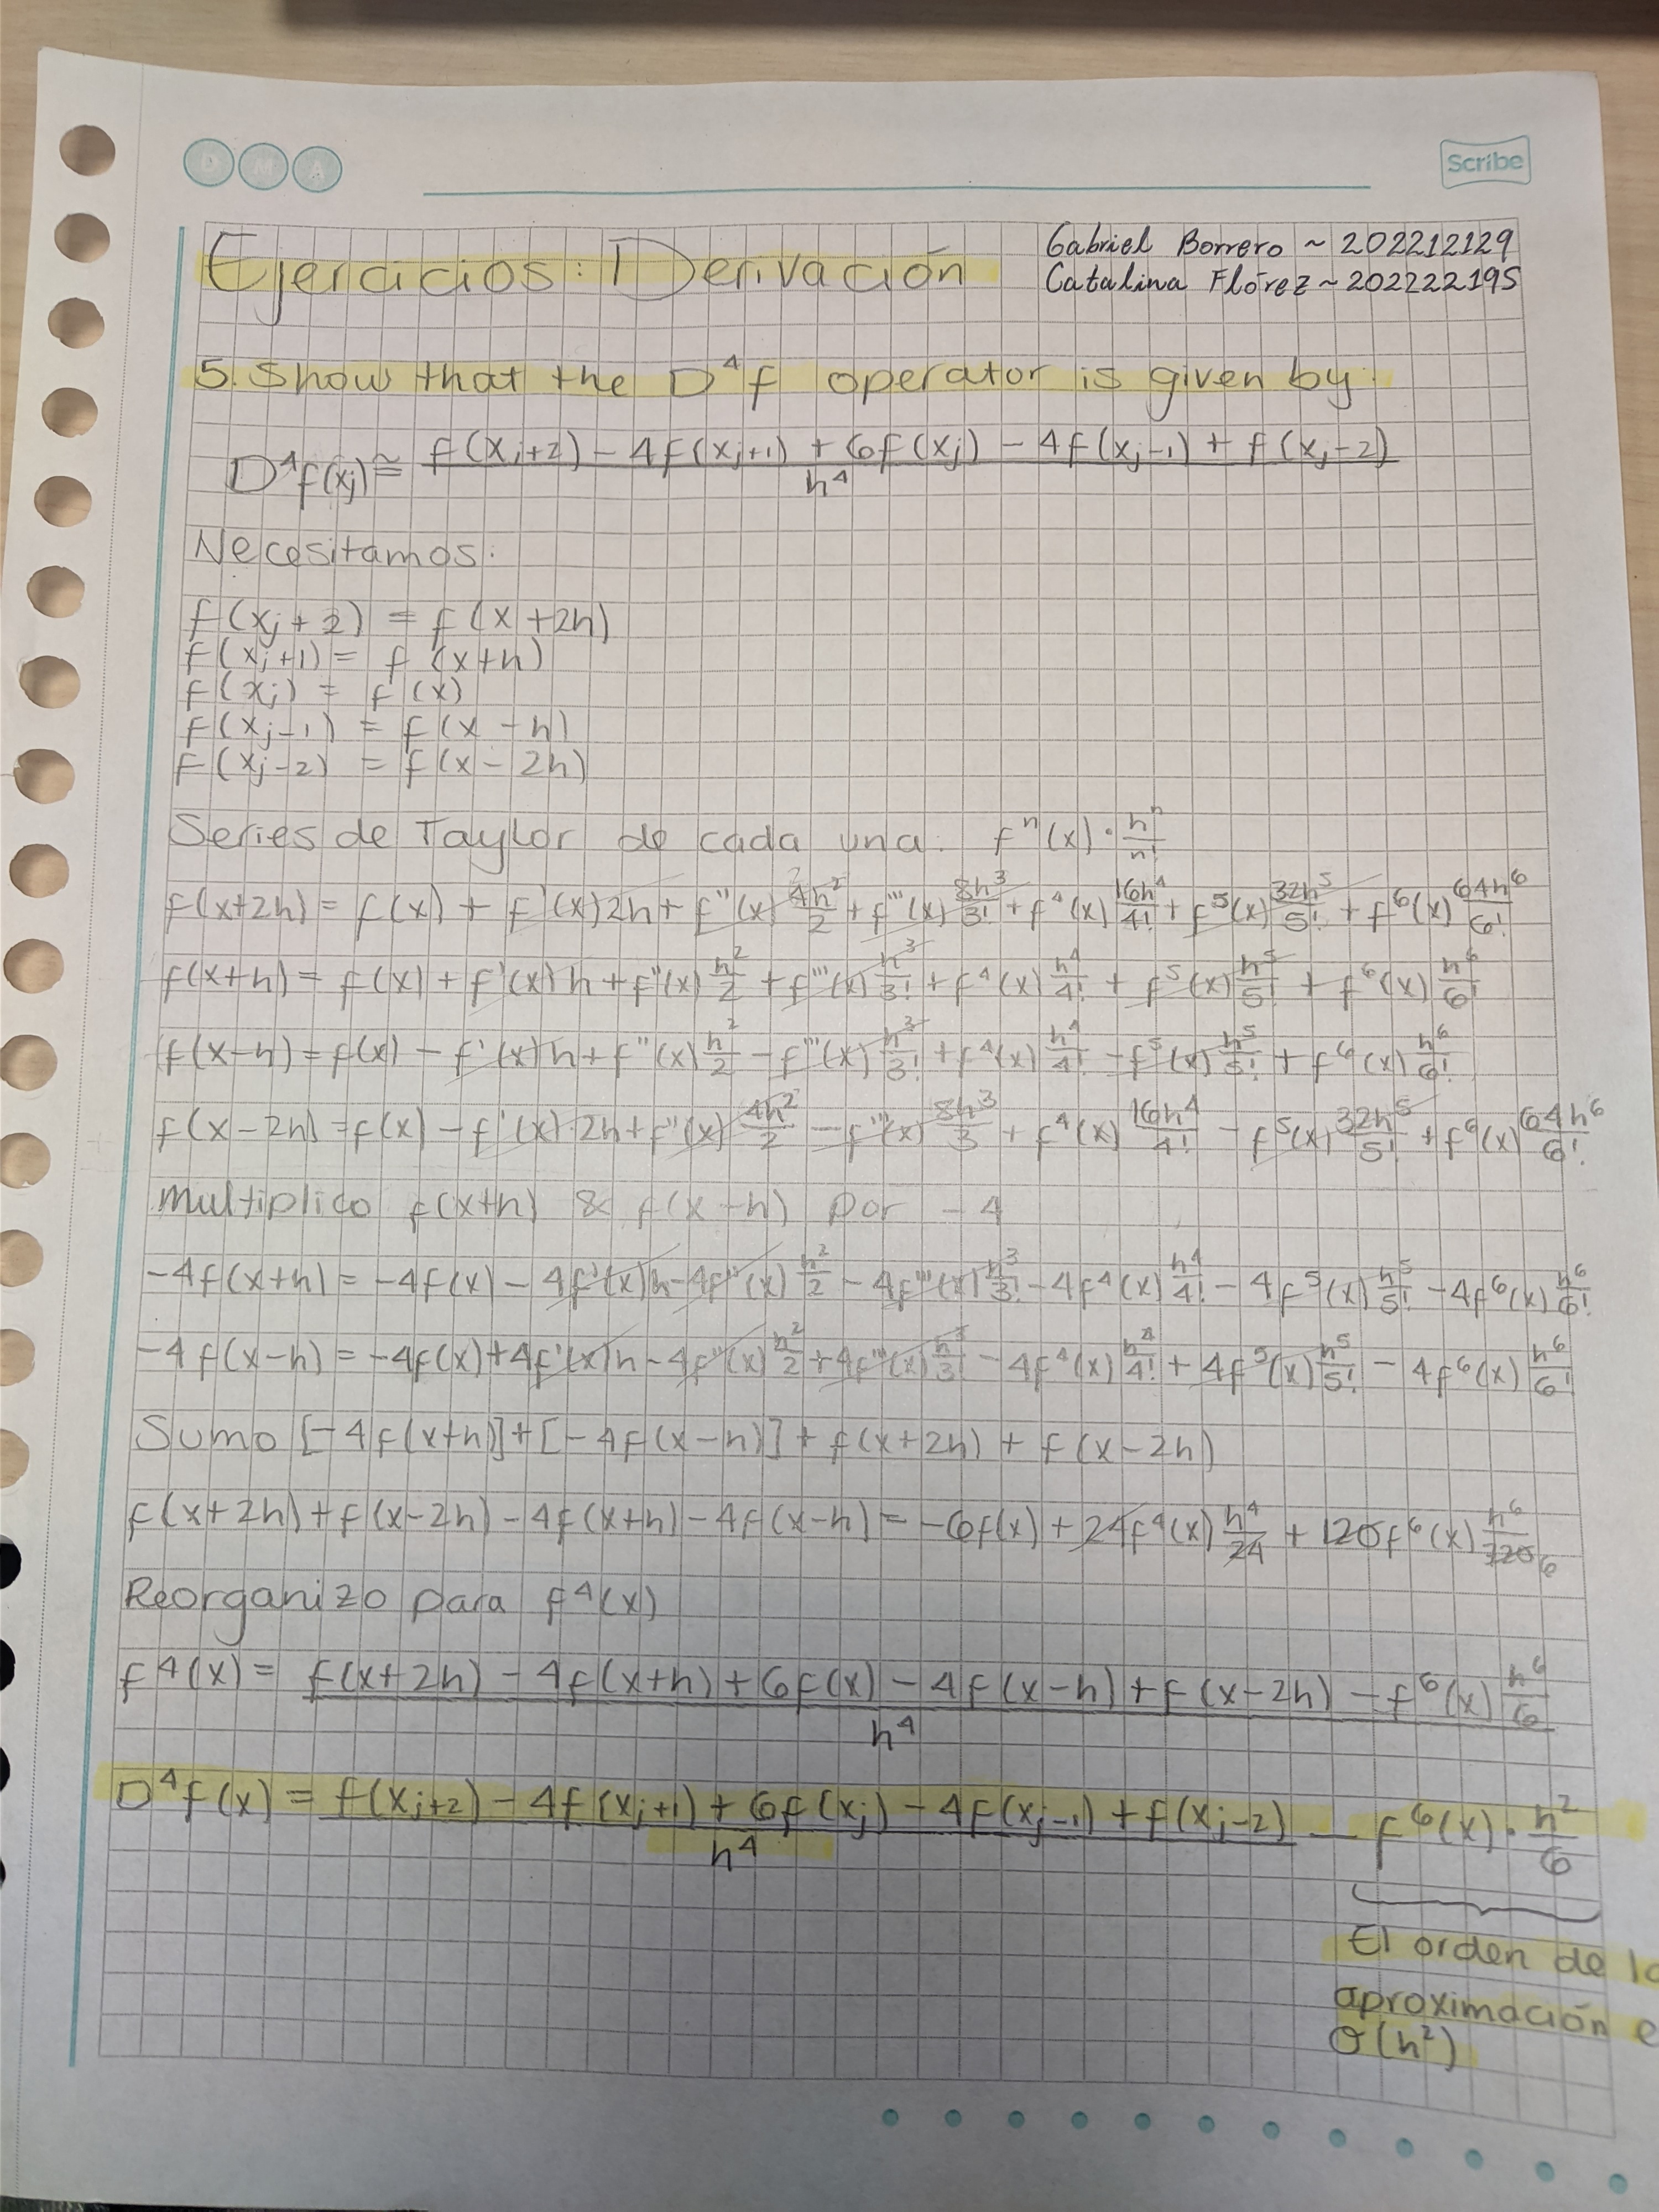 D M A
Scribe
Ejercicios: Derivación
Gabriel Borrero ~ 202212129
Catalina Flórez ~ 202222195
5. Show that the D⁴f operator is given by:
D⁴f(xⱼ) ≅ (f(xⱼ+2) − 4f(xⱼ₊₁) + 6f(xⱼ) − 4f(xⱼ₋₁) + f(xⱼ−2)) / h⁴
Necesitamos:
f(xⱼ+2) = f(x+2h)
f(xⱼ+1) = f(x+h)
f(xⱼ) = f(x)
f(xⱼ−1) = f(x−h)
f(xⱼ−2) = f(x−2h)
Series de Taylor de cada una: fⁿ(x)·hⁿ/n!
f(x+2h) = f(x) + f'(x)2h + f''(x) 4h²/2 + f'''(x) 8h³/3! + f⁴(x) 16h⁴/4! + f⁵(x) 32h⁵/5! + f⁶(x) 64h⁶/6!
f(x+h) = f(x) + f'(x)h + f''(x) h²/2 + f'''(x) h³/3! + f⁴(x) h⁴/4! + f⁵(x) h⁵/5! + f⁶(x) h⁶/6!
f(x−h) = f(x) − f'(x)h + f''(x) h²/2 − f'''(x) h³/3! + f⁴(x) h⁴/4! − f⁵(x) h⁵/5! + f⁶(x) h⁶/6!
f(x−2h) = f(x) − f'(x)2h + f''(x) 4h²/2 − f'''(x) 8h³/3 + f⁴(x) 16h⁴/4! − f⁵(x) 32h⁵/5! + f⁶(x) 64h⁶/6!
multiplico f(x+h) & f(x−h) por −4
−4f(x+h) = −4f(x) − 4f'(x)h − 4f''(x) h²/2 − 4f'''(x) h³/3! − 4f⁴(x) h⁴/4! − 4f⁵(x) h⁵/5! − 4f⁶(x) h⁶/6!
−4f(x−h) = −4f(x) + 4f'(x)h − 4f''(x) h²/2 + 4f'''(x) h³/3! − 4f⁴(x) h⁴/4! + 4f⁵(x) h⁵/5! − 4f⁶(x) h⁶/6!
Sumo [−4f(x+h)] + [−4f(x−h)] + f(x+2h) + f(x−2h)
f(x+2h) + f(x−2h) − 4f(x+h) − 4f(x−h) = −6f(x) + 24f⁴(x) h⁴/24 + 120f⁶(x) h⁶/720 6
Reorganizo para f⁴(x)
f⁴(x) = (f(x+2h) − 4f(x+h) + 6f(x) − 4f(x−h) + f(x−2h) − f⁶(x) h⁶/6) / h⁴
D⁴f(x) = (f(xⱼ₊₂) − 4f(xⱼ₊₁) + 6f(xⱼ) − 4f(xⱼ₋₁) + f(xⱼ₋₂)) / h⁴ − f⁶(x)·h²/6
El orden de
aproximación
O(h²)